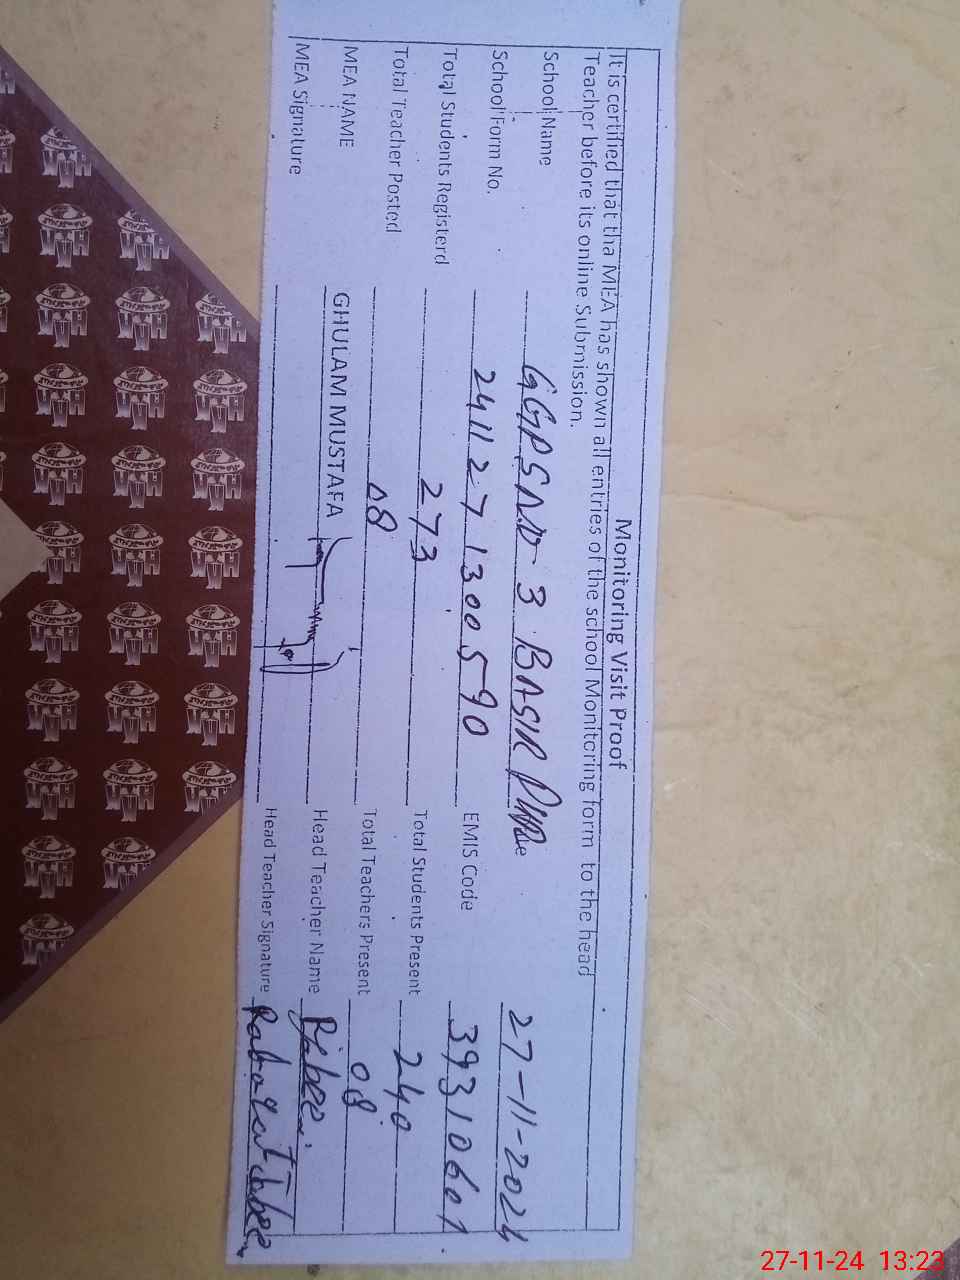 Monitoring Visit Proof
It is certified that tha MEA has shown all entries of the school Monitoring form to the head
Teacher before its online Submission.
School Name GGPS No 3 BASIR PUR 27-11-2024
School Form No. 2411271300590 EMIS Code 39310601
Total Students Registerd 273 Total Students Present 240
Total Teacher Posted 08 Total Teachers Present 08
MEA NAME GHULAM MUSTAFA Head Teacher Name
MEA Signature Head Teacher Signature
27-11-24 13:23